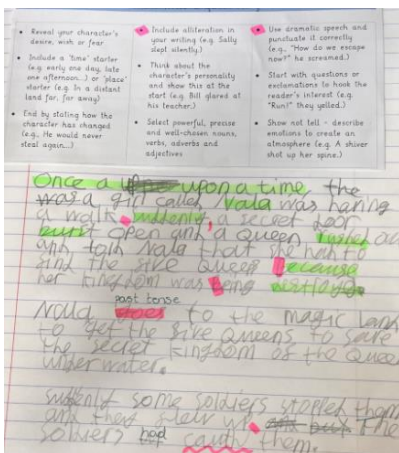 Reveal your character's
desire, wish or fear
Include a 'time' starter
(e.g. early one day, late
one afternoon...) or 'place'
starter (e.g. In a distant
land far, far away)
End by stating how the
character has changed
(e.g. He would never
steal again...)
Include alliteration in
your writing (e.g. Sally
slept silently.)
Think about the
character's personality
and show this at the
start (e.g. Bill glared at
his teacher.)
Select powerful, precise
and well-chosen nouns,
verbs, adverbs and
adjectives
Use dramatic speech and
punctuate it correctly
(e.g., "How do we escape
now?" he screamed.)
Start with questions or
exclamations to hook the
reader's interest (e.g.
"Run!" they yelled.)
Show not tell - describe
emotions to create an
atmosphere (e.g. A shiver
shot up her spine.)
Once a upon a time, the
was a girl called Nala was having
a walk, suddenly a secret door
burst open and a Queen rushed ou
and told Nala that she had to
find the five Queens because
her kingdom was being
past tense
goes to the magic land
to get the five Queens to save
the secret kingdom of the Quee
under water.
suddenly some soldiers stopped them
and they
soldiers had them.